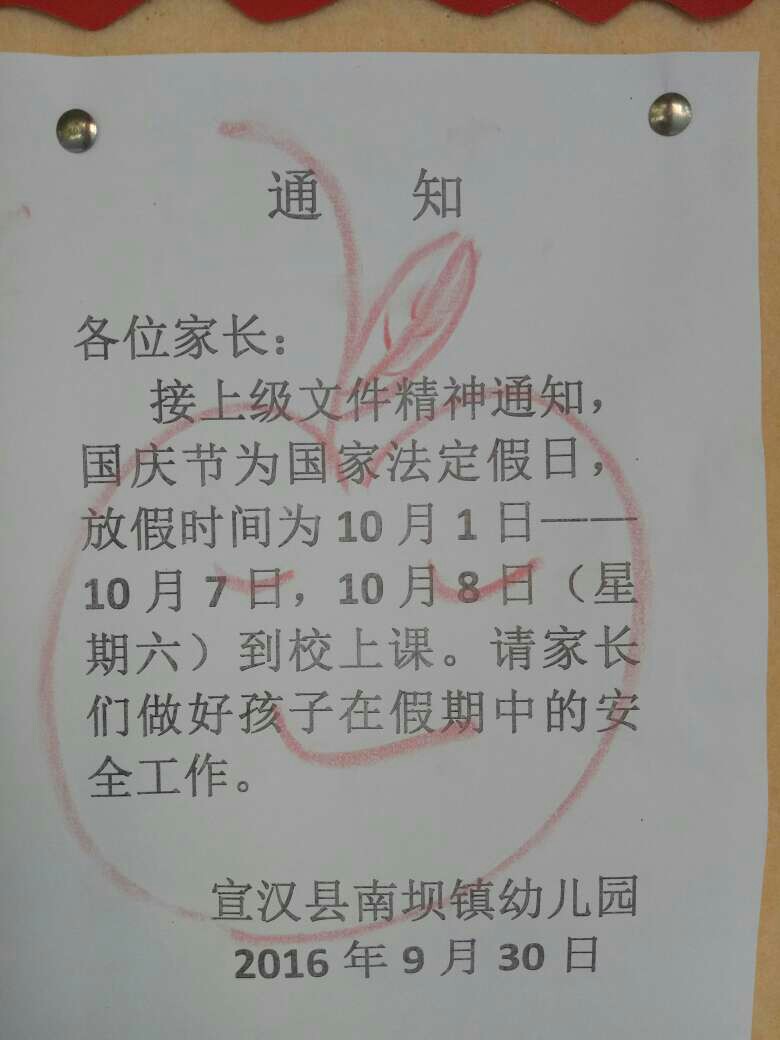 通 知
各位家长：
接上级文件精神通知，
国庆节为国家法定假日，
放假时间为 10 月 1 日——
10 月 7 日，10 月 8 日（星
期六）到校上课。请家长
们做好孩子在假期中的安
全工作。
宣汉县南坝镇幼儿园
2016 年 9 月 30 日